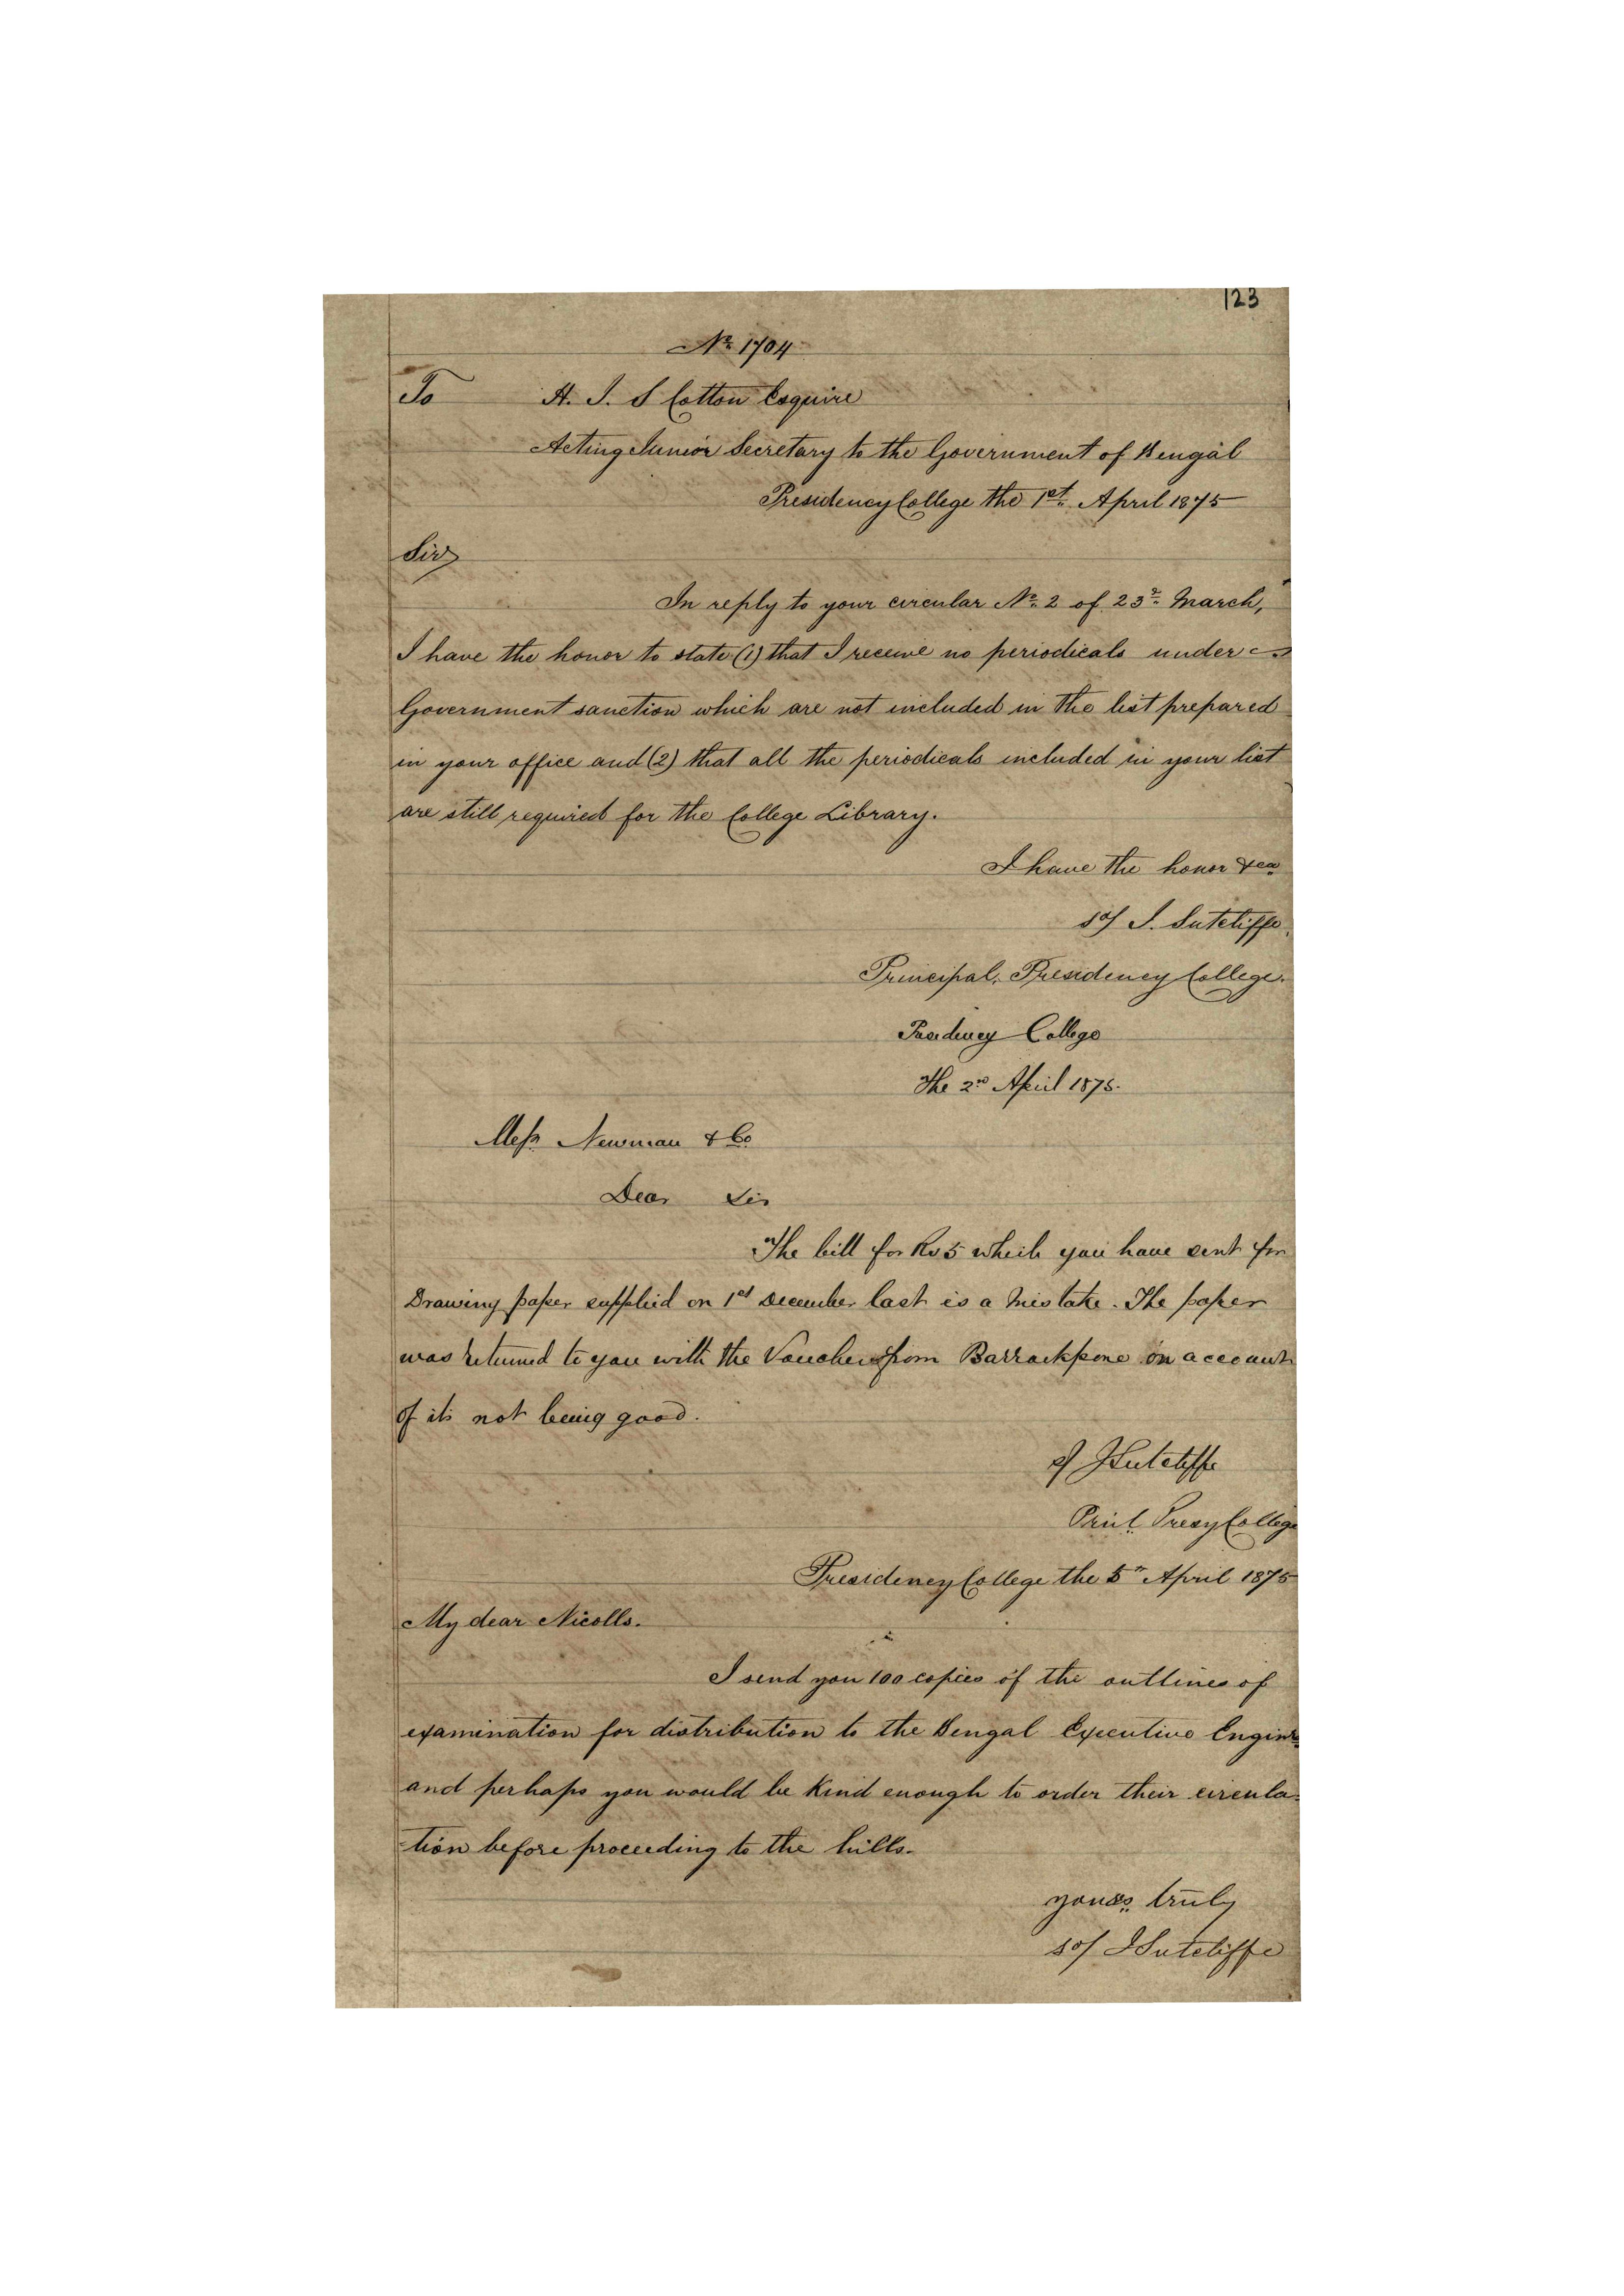 123
No. 1704
To H. J. S Cotton Esquire
Acting Junior Secretary to the Government of Bengal
Presidency College the 1st. April 1875
Sir,
In reply to your circular No. 2 of 23d. March,
I have the honor to state (1) that I receive no periodicals under
Government sanction which are not included in the list prepared
in your office and (2) that all the periodicals included in your list
are still required for the College Library.
I have the honor &ca
sd/ J. Sutcliffe.
Principal, Presidency College.
Presidency College
The 2nd April 1875.
Messrs Newman & Co.
Dear Sir
The bill for Rs 5 which you have sent for
Drawing paper supplied on 1st December last is a mistake. The paper
was returned to you with the Voucher from Barrackpore on account
of its not being good.
sd/ J Sutcliffe
Prinl. Presy College
Presidency College the 5th April 1875
My dear Nicolls.
I send you 100 copies of the outlines of
examination for distribution to the Bengal Executive Enginrs
and perhaps you would be kind enough to order their circula-
-tion before proceeding to the hills.
yours truly
sd/ J Sutcliffe